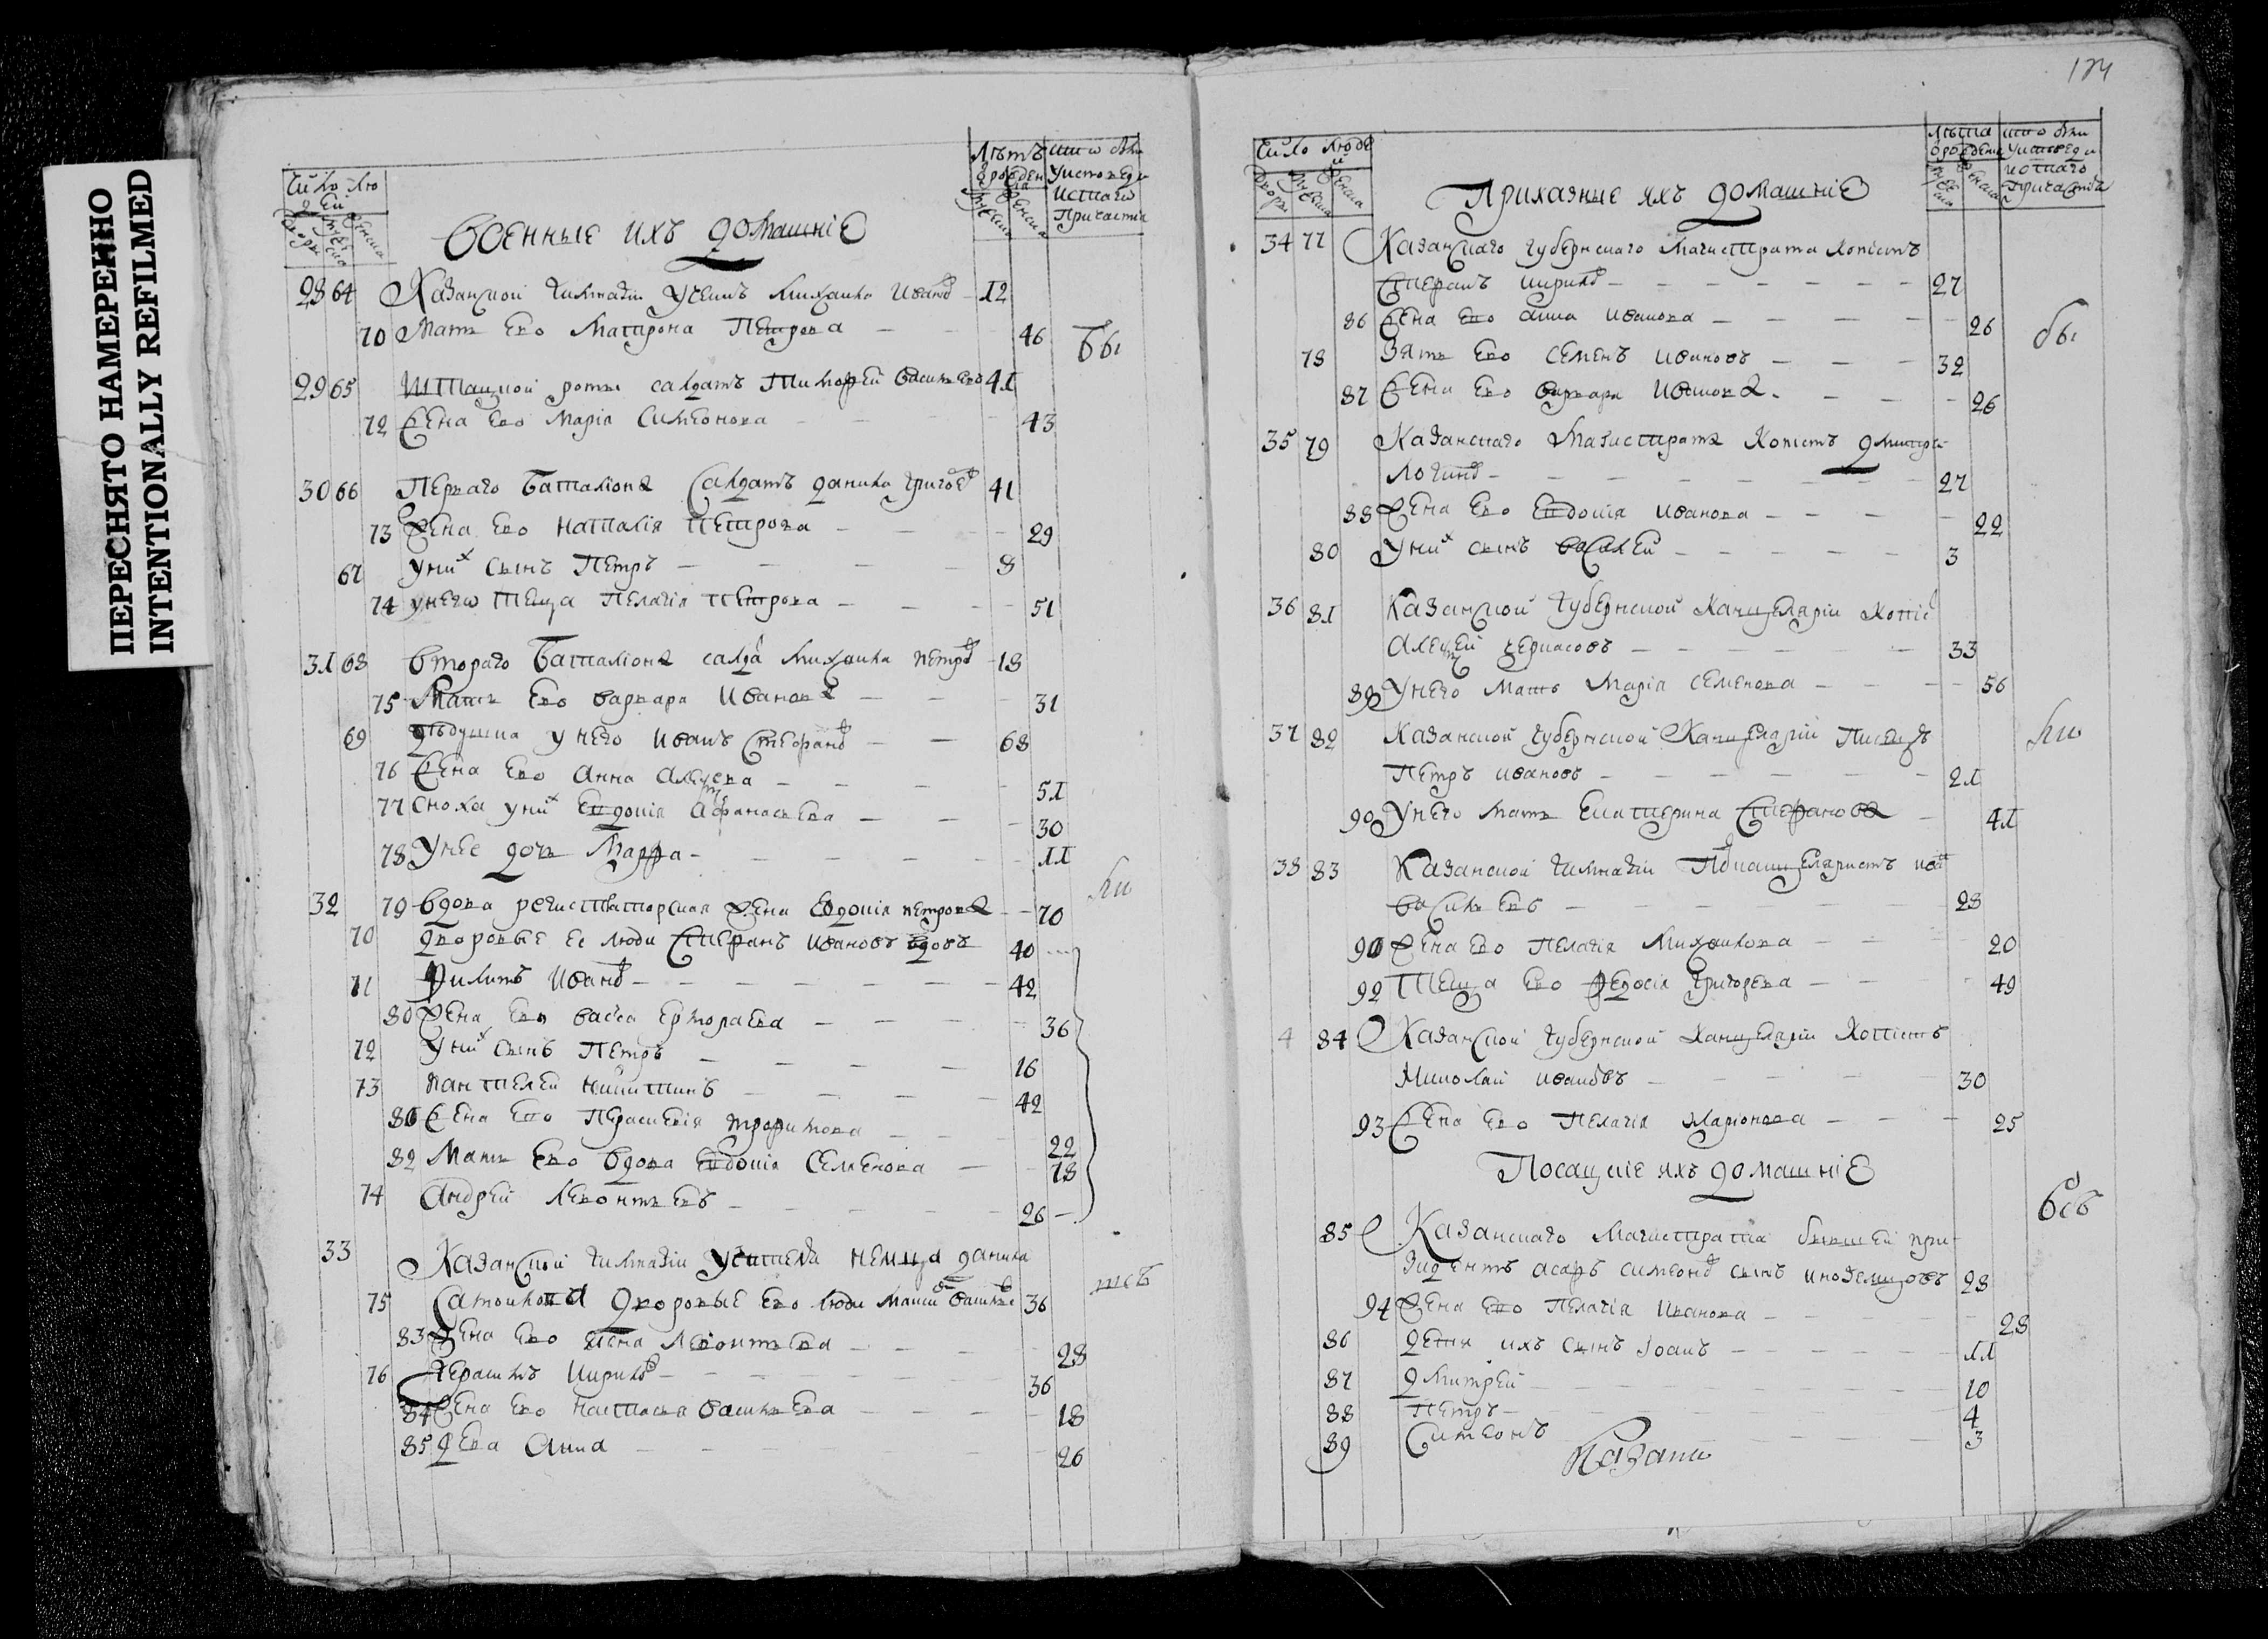 ПЕРЕСНЯТО НАМЕРЕННО
INTENTIONALLY REFILMED
Число лю
дей
Дворы
мужеска
женска
Военные ихъ домашніе
Лѣтъ
мужеска
женска
Кто были
у исповеди
и святаго
причастія
28 64 Казанской гимназіи ученикъ Михаила Иванов 12
70 Мать ево Матрона Петрова 46
бы
29 65 Штацкой роты салдатъ Тимофей Васильевъ 41
72 Жена ево Марія Симеонова 43
30 66 Перваго баталіона салдатъ Данила Григоєв 41
73 Жена ево Наталія Петрова 29
67 у них сынъ Петръ 8
74 у него теща Пелагія Петрова 51
31 68 Втораго баталіона салда Михаила Петров 18
75 Мать ево Варвара Иванова 31
69 дѣдушка у него Иванъ Стефанов 68
76 Жена ево Анна Алексеева 51
77 Сноха у них Евдокія Афанасьева 30
78 У нее дочь Марфа 11
бы
32 79 Вдова регистраторская жена Евдокія Петрова 70
70 Дворовые ее люди Стефанъ Ивановъ вдовъ 40
71 Филипъ Иванов 42
80 Жена ево Васса Ермолаева 36
72 У них сынъ Петръ 16
73 Пантелей Никитинъ 42
81 Жена ево Парасковія Трофимова 22
82 Мать ево вдова Евдокія Семенова 78
74 Андрей Левонтьевъ 26
33 Казанской гимназіи учителя немца Данила
75 Самойлова дворовые ево люди 36
83 Жена ево Левонтьева 28
76 Герасимъ Кирилов 36
84 Жена ево Настасья Васильева 18
85 Дева Анна 26
Число люде
й
Дворы
мужеска
женска
Приказные ихъ домашніе
Лѣта
мужеска
женска
Кто были
у исповеди
и святаго
причастія
34 77 Казанскаго губернскаго магистрата копистъ
Стефанъ Кирилов 27
86 Жена ево Анна Иванова 26
бы
78 Зять ево Семенъ Ивановъ 32
87 Жена ево Варвара Иванова 26
35 79 Казанскаго магистрата копистъ Дмитрей
Логинов 27
88 Жена ево Евдокія Иванова 22
80 У них сынъ Василей 3
36 81 Казанской губернской канцеляріи копіс
Алексей Черкасовъ 33
89 У него мать Марія Семенова 56
37 82 Казанской губернской канцеляріи писецъ
Петръ Ивановъ 21
бы
90 У него мать Екатерина Стефанова 41
38 83 Казанской гимназіи подканцеляристъ Иван
Васильевъ 28
91 Жена ево Пелагія Михаилова 20
92 Теща ево Федосія Григорева 49
4 84 Казанской губернской канцеляріи копистъ
Николай Ивановъ 30
93 Жена ево Пелагія Иларіонова 25
Посацкіе ихъ домашніе
85 Казанскаго магистрата бывшей пре
зидентъ Асафъ Симеонов сынъ Иноземцовъ 28
94 Жена ево Пелагія Иванова 28
86 Дети ихъ сынъ Іоанъ 11
87 Дмитрей 10
88 Петръ 4
89 Симеонъ 3
Казани